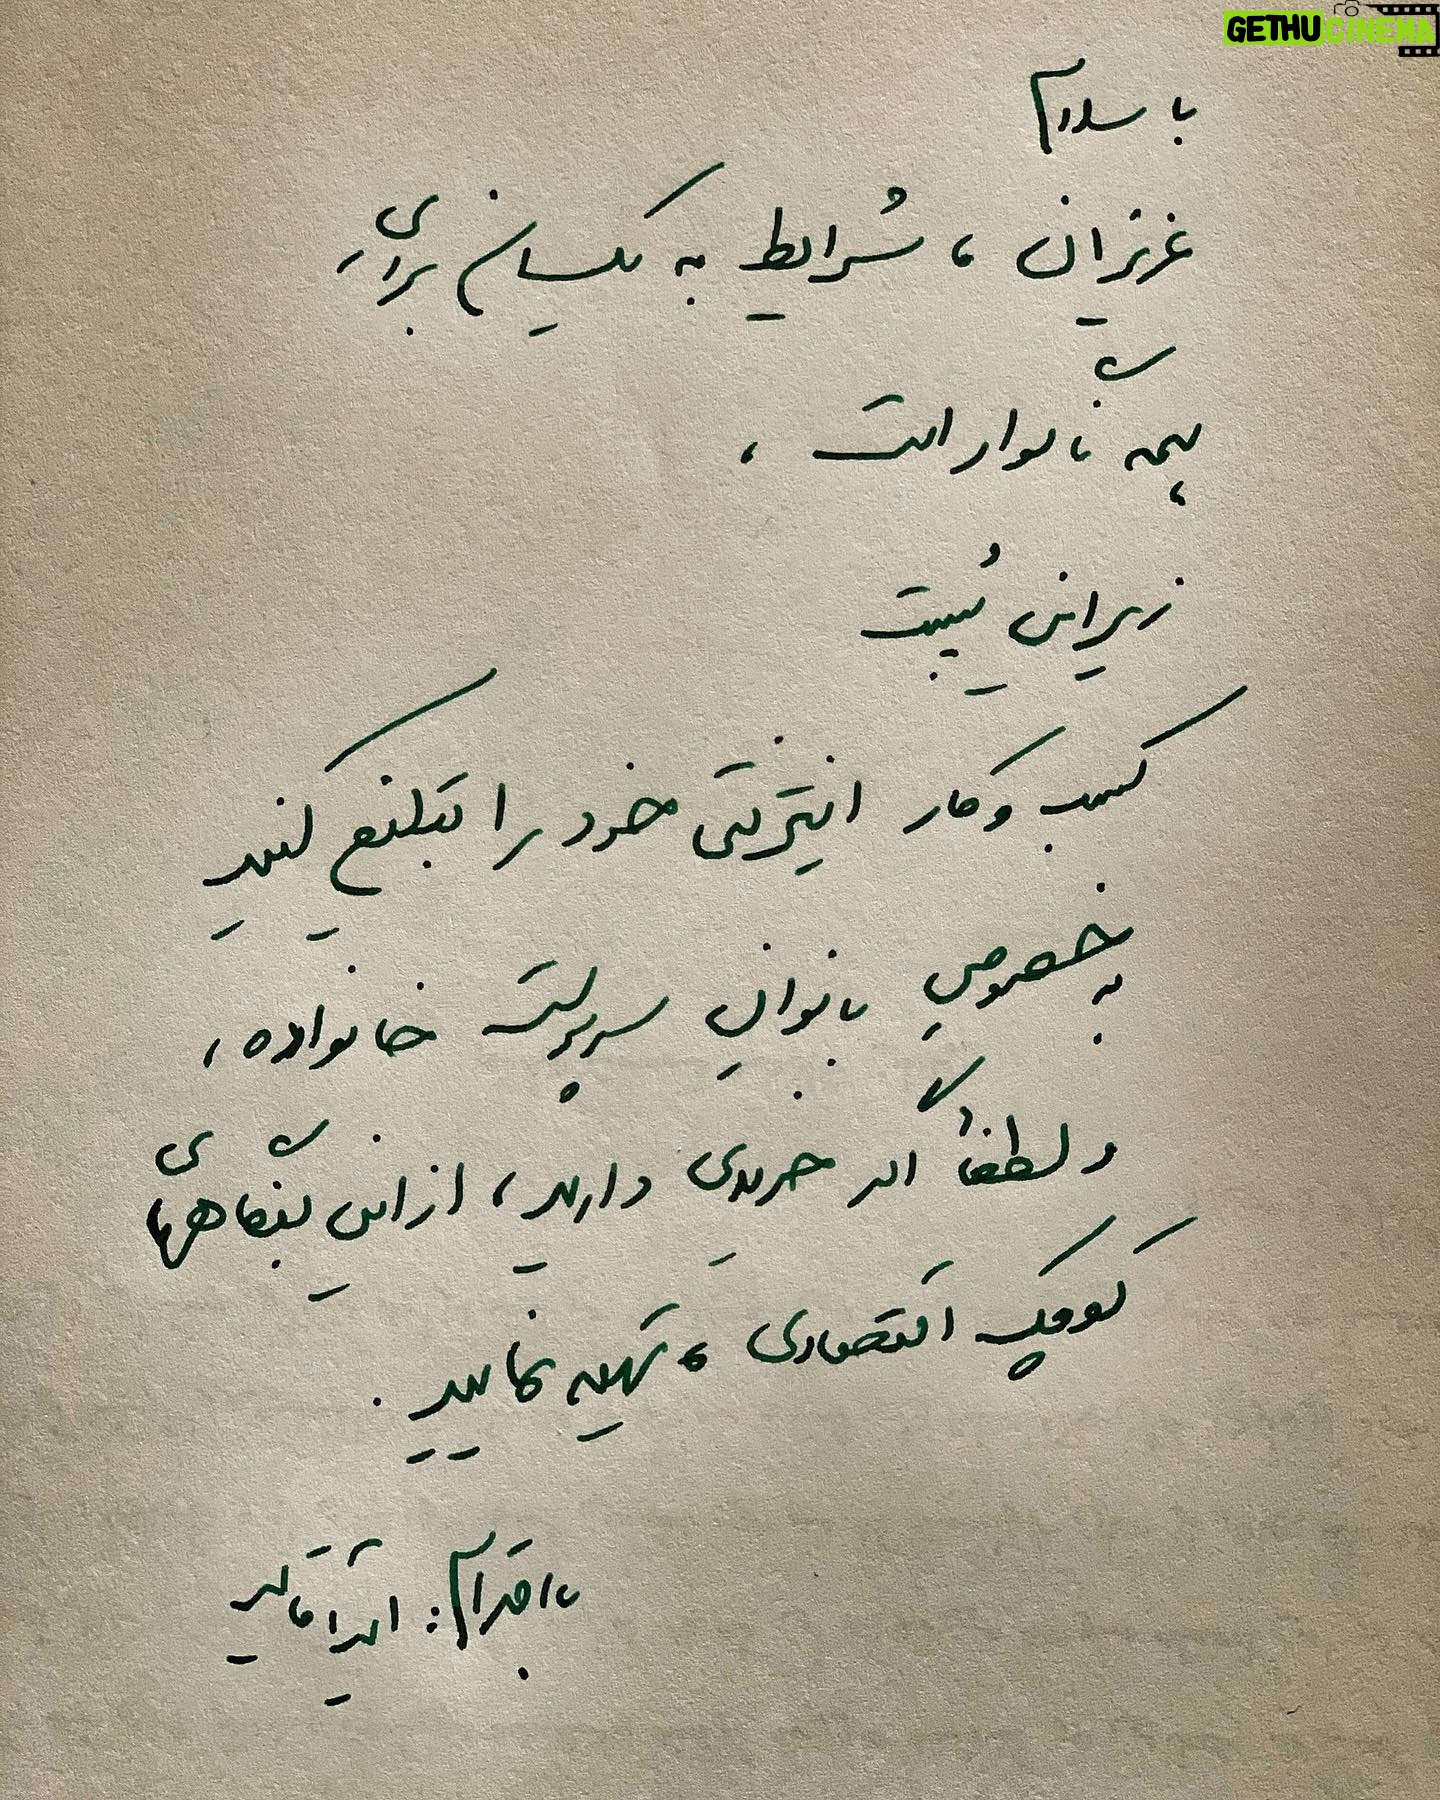 GETHUCINEMA
با سلام
عزیزان، شرایط به یکسان برای
همه ناگوار است،
زیر این پُست
کسب و کار اینترنتی خود را تبلیغ کنید
به خصوص بانوانِ سرپرست خانواده،
و لطفاً اگر خریدی دارید، از این بنگاه‌های
کوچک اقتصادی، تهیه نمایید.
با احترام: